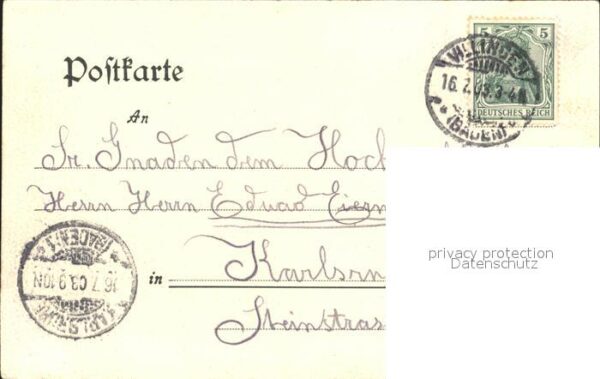 5 5
DEUTSCHES REICH
VILLINGEN
16.7.03.3-4N
(BADEN)
Postkarte
An
Sr. Gnaden dem Hoch
Herrn Herrn Eduad
in Karlsru
Steinstras
KARLSRUHE
16.7.03.9-10N
(BADEN) 1
privacy protection
Datenschutz